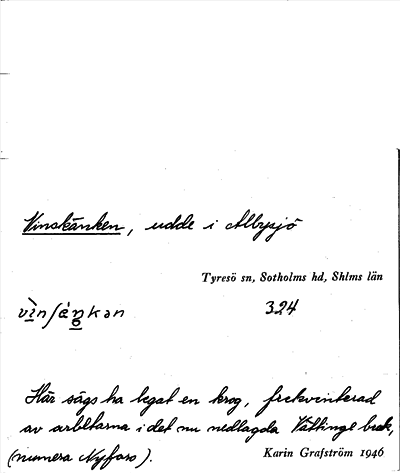 Vinskänken, udde i Albysjö
Tyresö sn, Sotholms hd, Shlms län
324
Här sägs ha legat en krog, frekvinterad
av arbetarna i det nu nedlagda Vättinge bruk,
(numera Nyfors).
Karin Grafström 1946